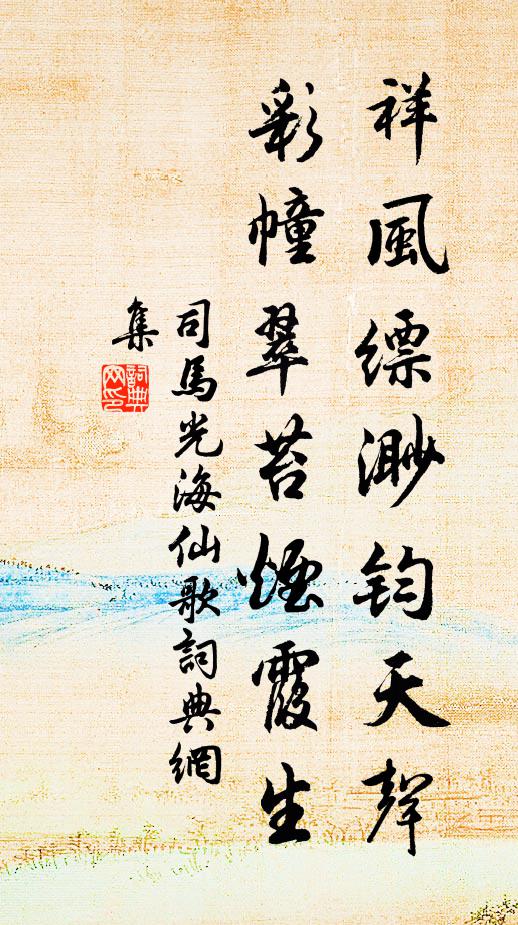 祥風縹渺鈞天聲
彩幢翠苔煙霞生
司馬光海仙歌詞典網
集
詞典网印